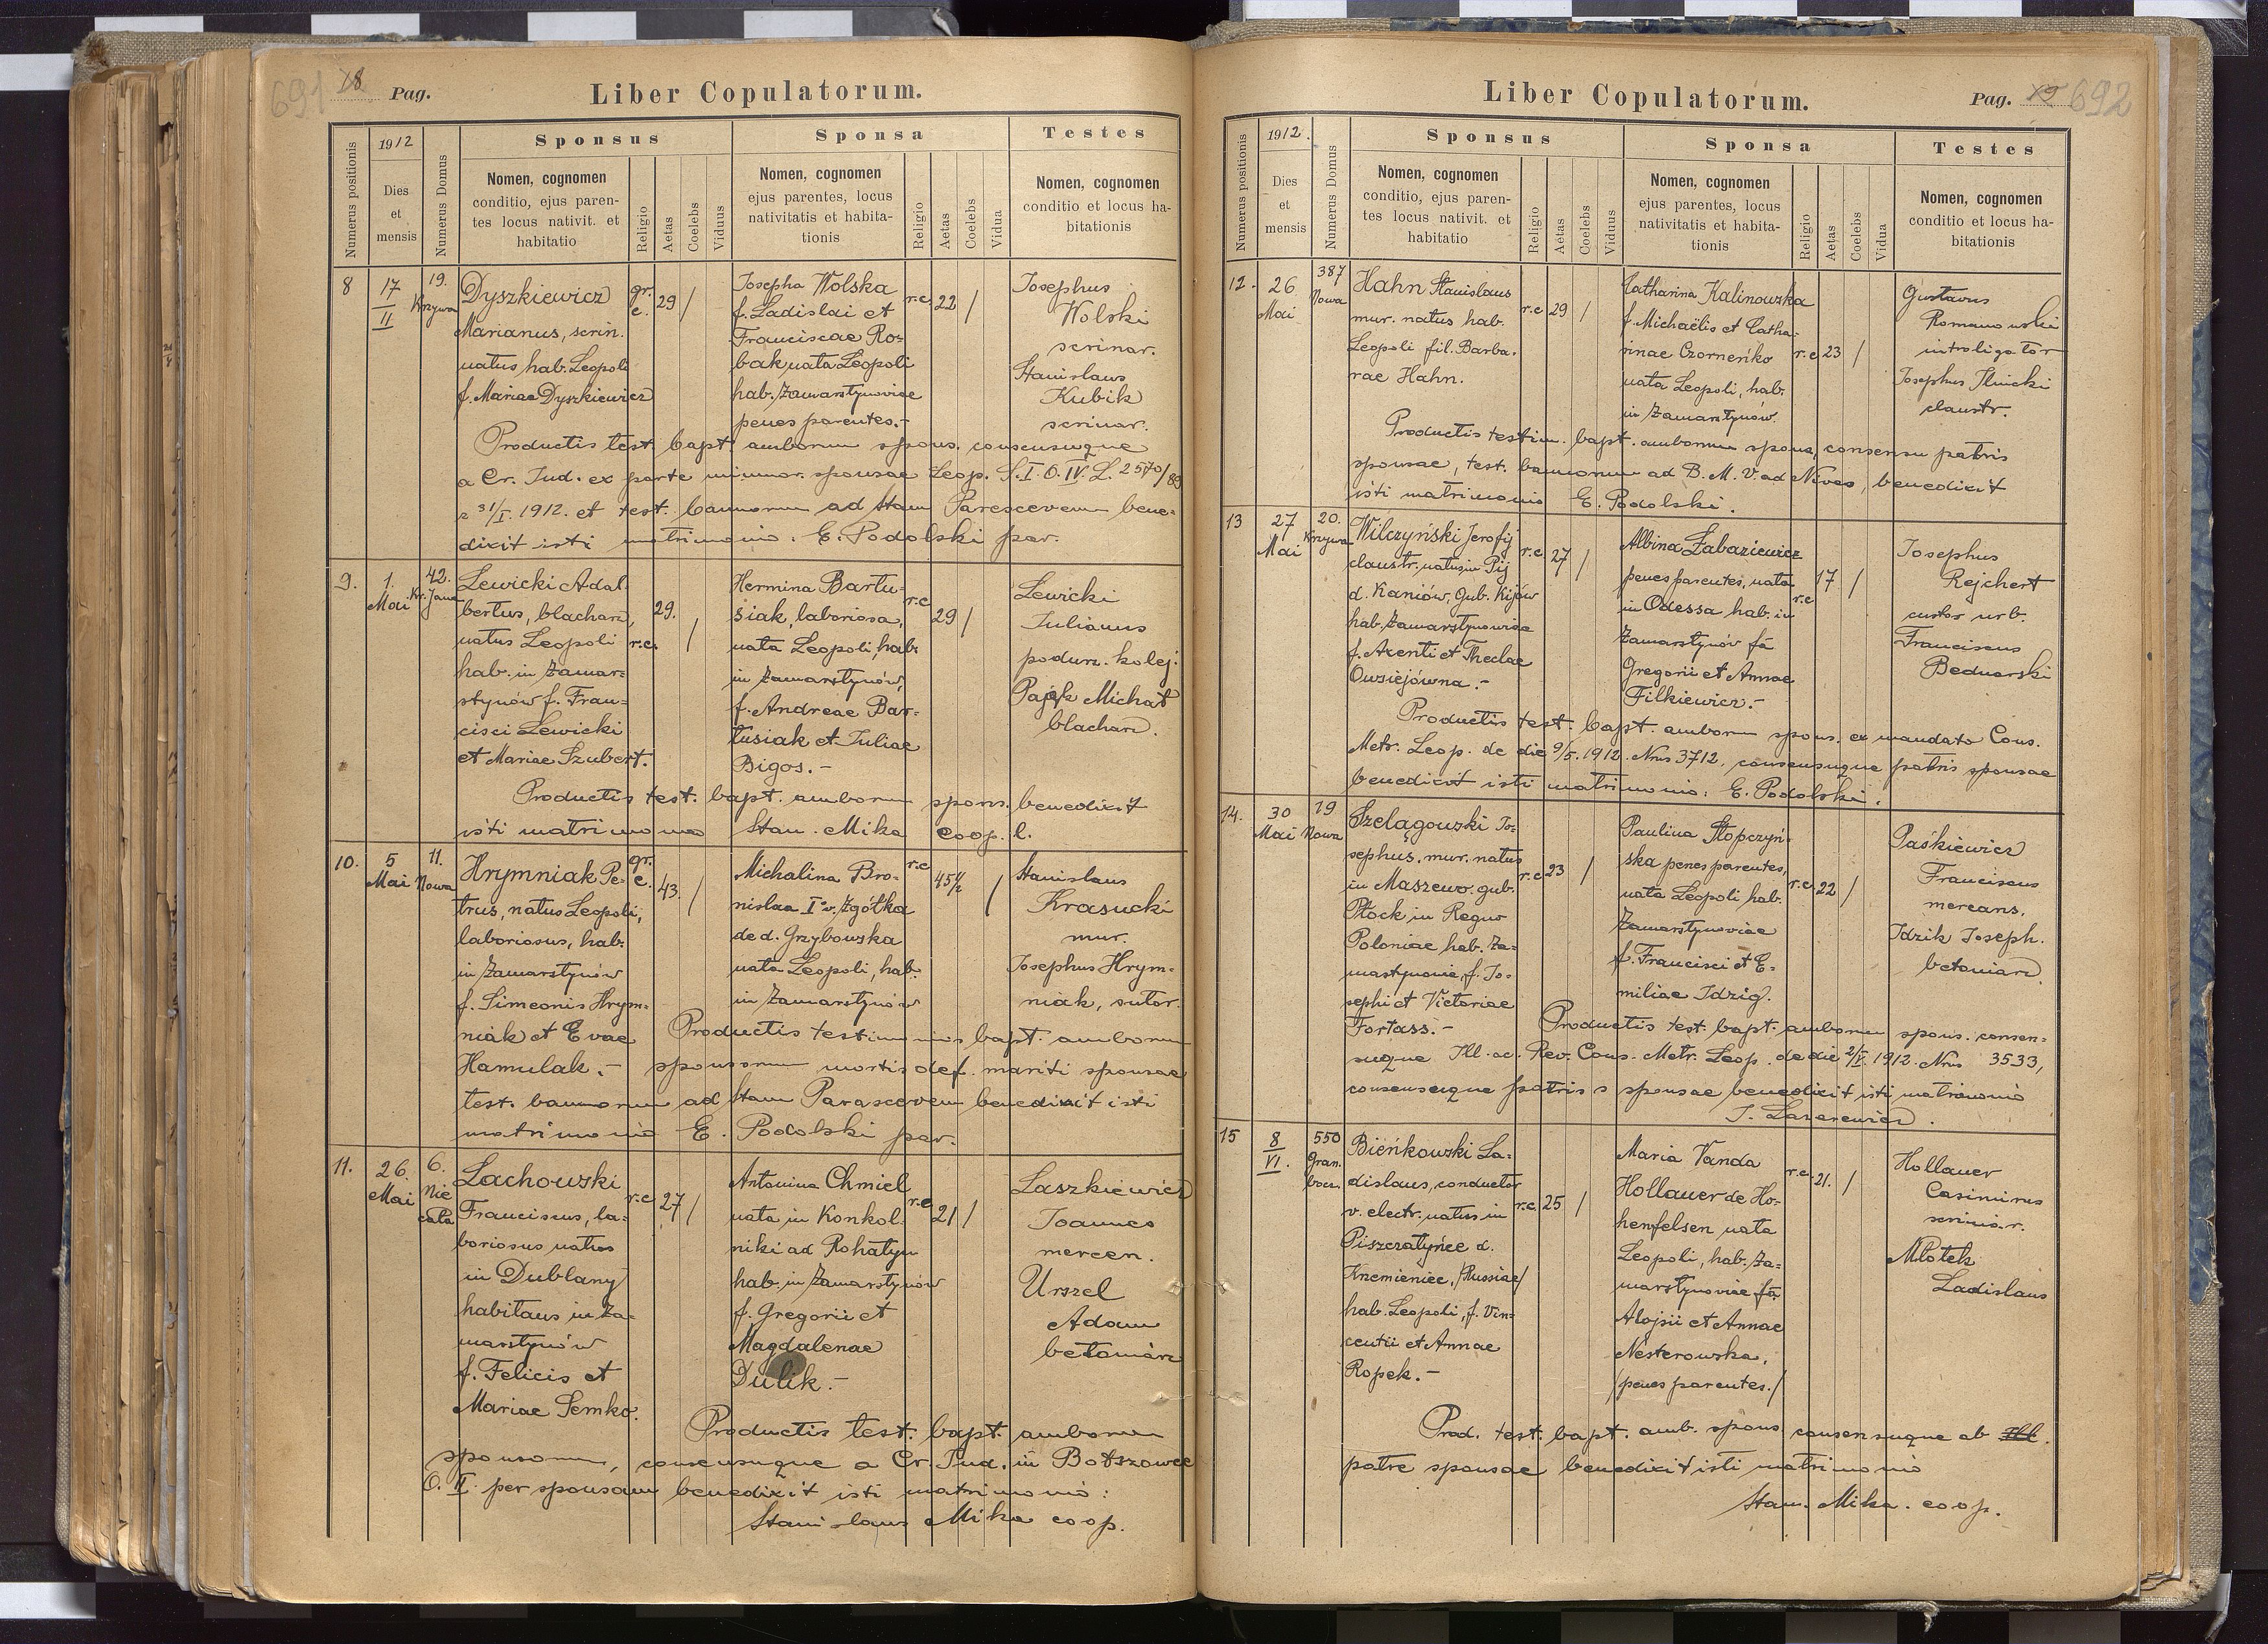 691 18 Pag.
Liber Copulatorum.
Numerus positionis
1912
Dies
et
mensis
Numerus Domus
Sponsus
Nomen, cognomen
conditio, ejus paren-
tes locus nativit. et
habitatio
Religio
Aetas
Coelebs
Viduus
Sponsa
Nomen, cognomen
ejus parentes, locus
nativitatis et habita-
tionis
Religio
Aetas
Coelebs
Vidua
Testes
Nomen, cognomen
conditio et locus ha-
bitationis
8
17
II
19.
Krzywa
Dyszkiewicz
Marianus, scrin.
natus hab. Leopoli
f. Mariae Dyszkiewicz
gr.
c.
29
/
Josepha Wolska
f. Ladislai et
Franciscae Ro-
bak nata Leopoli
hab. Zamarstynoviae
penes parentes.-
r.c.
22
/
Josephus
Wolski
scrinar.
Stanislaus
Kubik
scrinar.
Productis test. bapt. amborum spons. consensuque
a Cr. Jud. ex parte minor. sponsae Leop. S.I. O. IV. L. 2570/89
z 31/I. 1912. et test. bannorum ad Stam Parascevem bene-
dixit isti matrimonio. E. Podolski par.
9.
1.
Mai
42.
Lewicki Adal-
bertus, blacharz,
natus Leopoli
hab. in Zamar-
stynów f. Fran-
cisci Lewicki
et Mariae Szubert.
r.c.
29.
/
Hermina Bartu-
siak, laboriosa,
nata Leopoli, hab.
in Zamarstynów,
f. Andreae Bar-
tusiak et Juliae
Bigos.-
r.c
29
/
Lewicki
Julianus
podurz. kolej.
Pająk Michał
blacharz.
Productis test. bapt. amborum spons. benedixit
isti matrimonio Stan. Mika coop. l.
10.
5
Mai
11.
Nowa
Hrymniak Pe-
trus, natus Leopoli,
laboriosus, hab.
in Zamarstynów
f. Simeonis Hrym-
niak et Evae
Hamulak.-
gr.
c.
43.
/
Michalina Bro-
nislaa I°v. Zgółka
de d. Grzybowska
nata Leopoli, hab.
in Zamarstynów
r.c
45½
/
Stanislaus
Krasucki
mur.
Josephus Hrym-
niak, sutor.
Productis testimoniis bapt. amborum
sponsorum mortis def. mariti sponsae
test. bannorum ad Stam Parascevem benedixit isti
matrimonio E. Podolski par.
11.
26.
Mai
6.
Nie
cała
Lachowski
Franciscus, la-
boriosus natus
in Dublany
habitans in Za-
marstynów
f. Felicis et
Mariae Semko.
r.c
27
/
Antonina Chmiel
nata in Konkol-
niki ad Rohatyn
hab. in Zamarstynów
f. Gregorii et
Magdalenae
Dulik.-
r.c.
21
/
Laszkiewicz
Joannes
mercen.
Urszel
Adam
betoniarz
Productis test. bapt. amborum
sponsorum, consensuque a Cr. Jud. in Bołszowce
O. II. per sponsam benedixit isti matrimonio:
Stanislaus Mika coop.
Liber Copulatorum.
Pag. 19 692
Numerus positionis
1912.
Dies
et
mensis
Numerus Domus
Sponsus
Nomen, cognomen
conditio, ejus paren-
tes locus nativit. et
habitatio
Religio
Aetas
Coelebs
Viduus
Sponsa
Nomen, cognomen
ejus parentes, locus
nativitatis et habita-
tionis
Religio
Aetas
Coelebs
Vidua
Testes
Nomen, cognomen
conditio et locus ha-
bitationis
12.
26
Mai
387
Nowa
Hahn Stanislaus
mur. natus hab.
Leopoli fil. Barba-
rae Hahn.
r.c
29
/
Catharina Kalinowska
f. Michaëlis et Catha-
rinae Czorneńko
nata Leopoli, hab.
in Zamarstynów.
r.c
23
/
Gustavus
Romanowski
introligator
Josephus Ilnicki
claustr.
Productis testim. bapt. amborum spons, consensu patris
sponsae, test. bannorum ad B. M. V. ad Nives, benedixit
isti matrimonio E. Podolski.
13
27
Mai
20.
Krzywa
Wilczyński Jerofij
claustr. natus in Pij
d. Kaniów, Gub. Kijów
hab. Zamarstynowiae
f. Axenti et Theclae
Owsiejówna.-
r.c.
27
/
Albina Łabaziewicz
penes parentes, nata
in Odessa hab. in
Zamarstynów fa
Gregorii et Annae
Filkiewicz.-
r.c
17
/
Josephus
Rejchert
custos urb.
Franciscus
Bednarski
Productis test. bapt. amborum spons. ex mandato Cons.
Metr. Leop. de die 9/5. 1912. Nrus 3712. consensuque patris sponsae
benedixit isti matrimonio: E. Podolski.
14.
30
Mai
19
Nowa
Szelągowski Jo-
sephus, mur. natus
in Maszewo. gub.
Płock in Regno
Poloniae hab. Za-
mastynoviae, f. Jo-
sephi et Victoriae
Fortass.-
r.c
23
/
Paulina Stopczyń-
ska penes parentes,
nata Leopoli hab.
Zamarstynoviae
f. Francisci et E-
miliae Idzig.
r.c.
22
/
Paśkiewicz
Franciscus
mercans.
Idzik Joseph.
betoniarz
Productis test. bapt. amborum spons. consen-
suque Ill. ac. Rev. Cons. Metr. Leop. de die 2/V. 1912. Nrus 3533,
consensuque patris s sponsae benedixit isti matrimonio
J. Lazarewicz.
15
8
VI.
550
Bieńkowski La-
dislaus, conductor
v. electr. natus in
Piszczatyńce d.
Krzemieniec, /Russiae/
hab. Leopoli, f. Vin-
centii et Annae
Ropek.-
r.c.
25
/
Maria Vanda
Hollauer de Ho-
henfelsen nata
Leopoli, hab. Za-
marstynoviae fa
Alojsii et Annae
Nesterowska,
/penes parentes./
r.c.
21.
/
Hollauer
Casimirus
scriniar.
Młotek
Ladislaus
Prod. test. bapt. amb. spons. consensuque ab
patre sponsae benedixit isti matrimonio
Stan. Mika. coop.